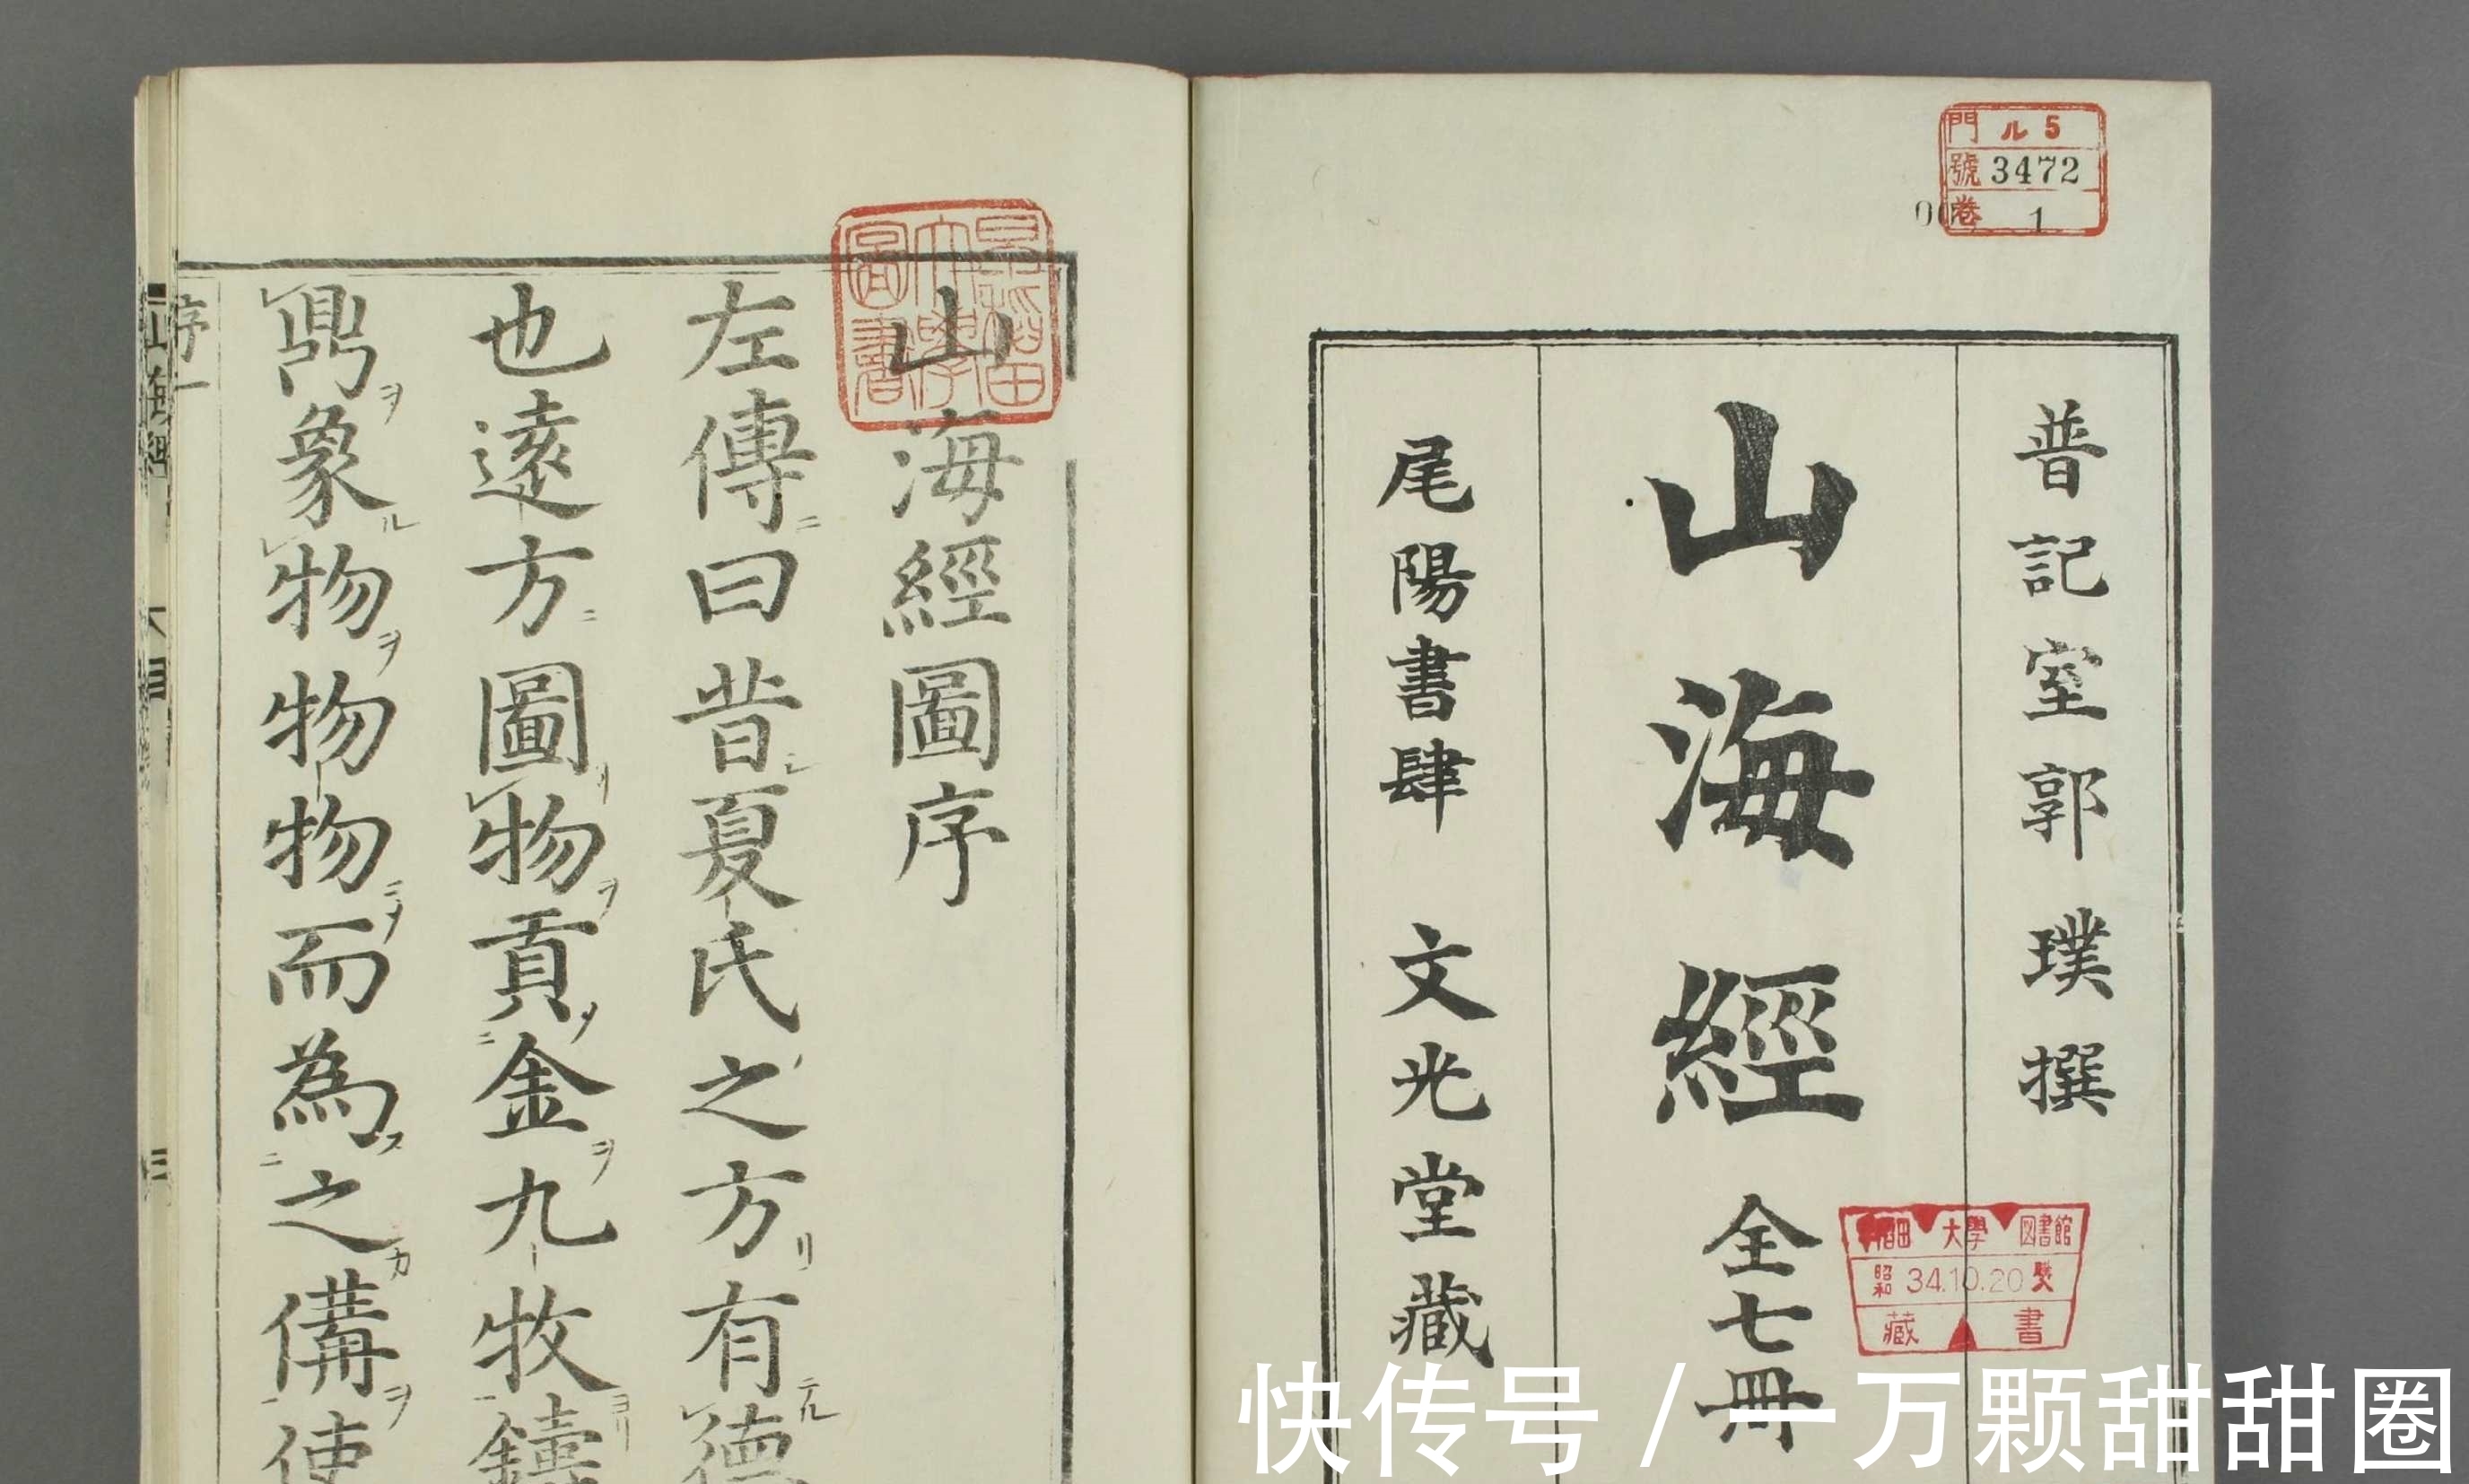 門 ル 5
號 3472
卷 1
普記室郭璞撰
山海經 全七冊
尾陽書肆 文光堂藏
稲田大學図書館
昭和 34.10.20
藏書
山海經圖序
左傳曰昔夏氏之方有德
也遠方圖物貢金九牧鑄
鼎象物物物而為之備使
序一
山海經
快传号/一万颗甜甜圈